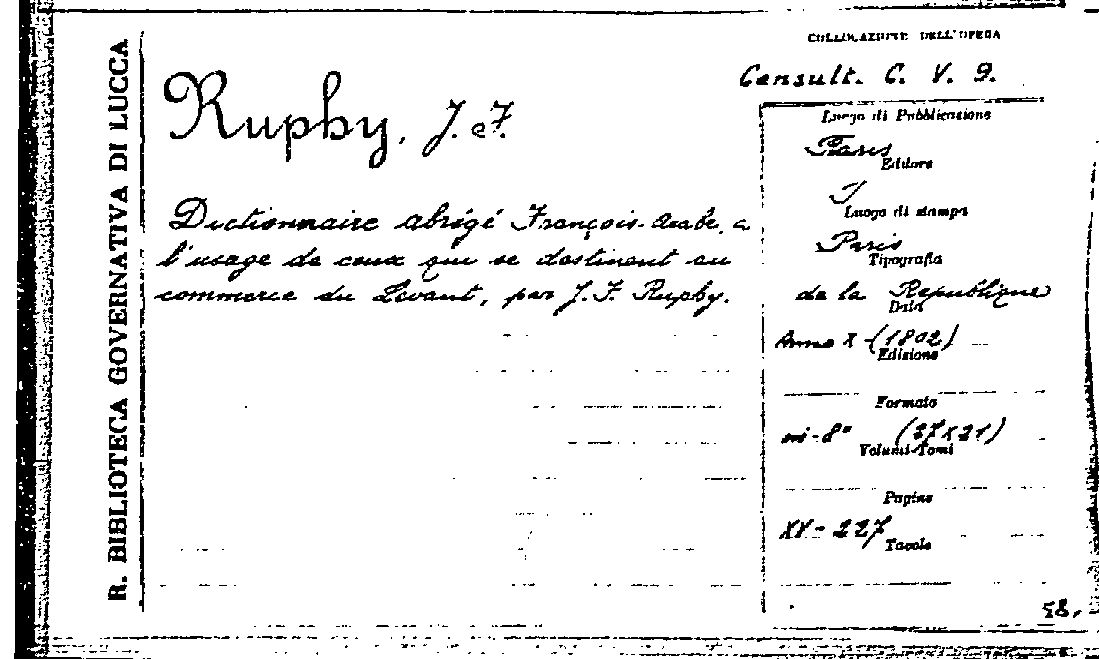 R. BIBLIOTECA GOVERNATIVA DI LUCCA
Ruphy, J. F.
Dictionnaire abrégé François-Arabe, a
l'usage de ceux qui se destinent au
commerce du Levant, par J. F. Ruphy.
COLLOCAZIONE DELL'OPERA
Consult. C. V. 9.
Luogo di Pubblicazione
Paris
Editore
Luogo di stampa
Paris
Tipografia
de la Republique
Data
Anno X (1802)
Edizione
Formato
in-8° (27x21)
Volumi-Tomi
Pagine
XV-227
Tavole
58.